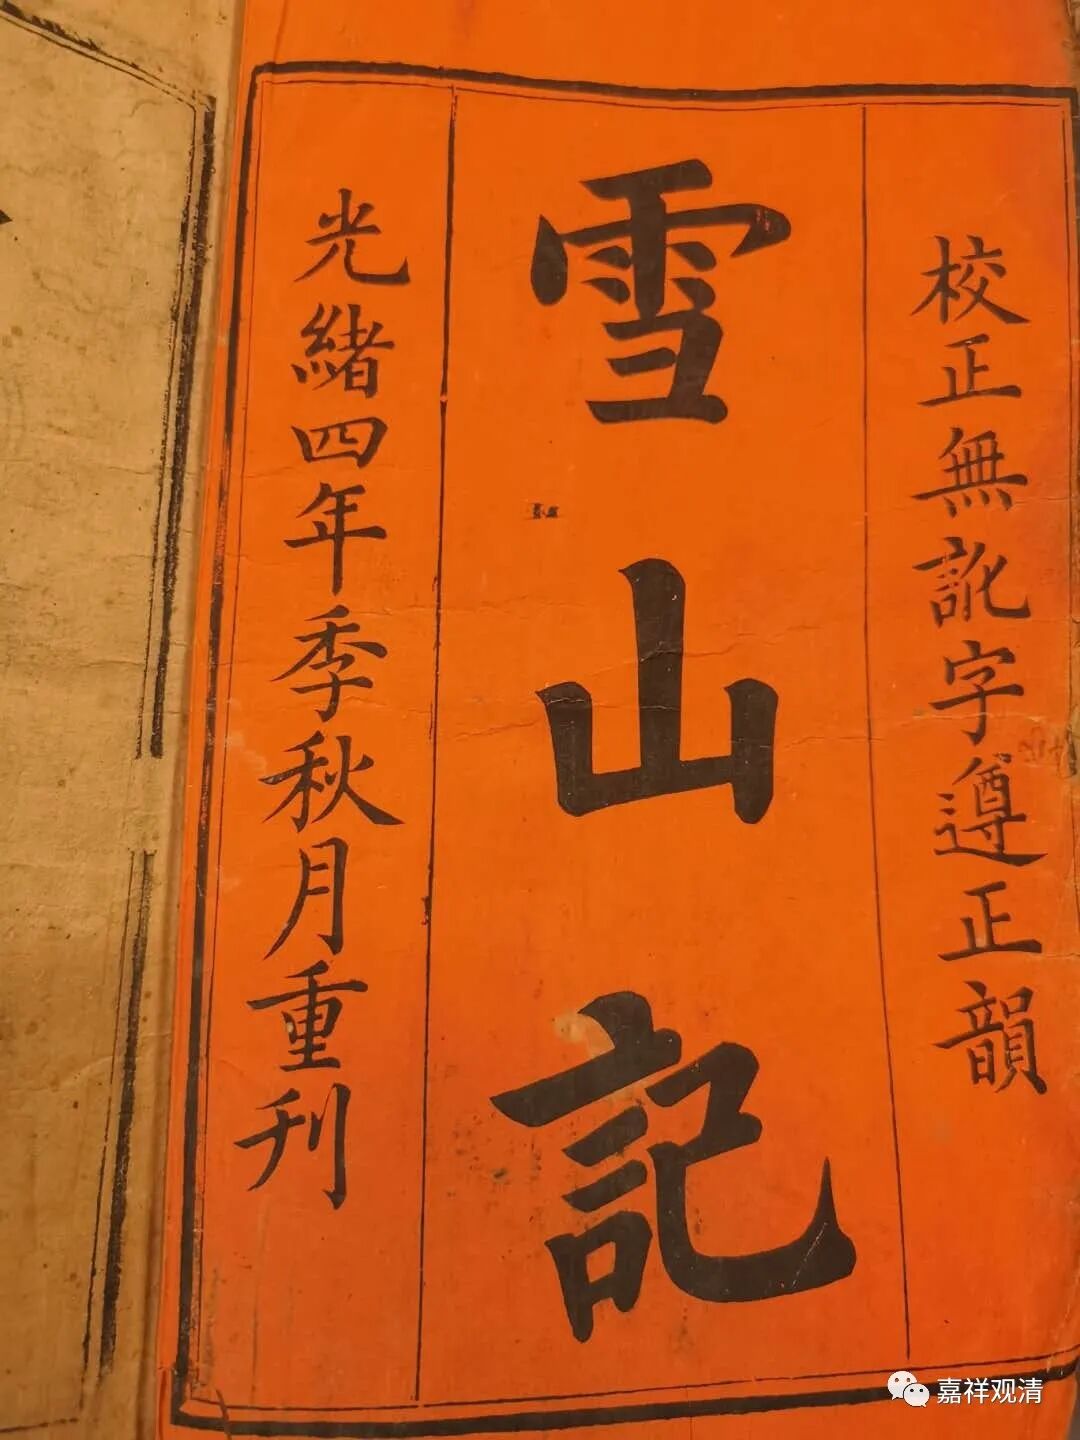 校正無訛字遵正韻
雪山記
光緒四年季秋月重刊
嘉祥观清